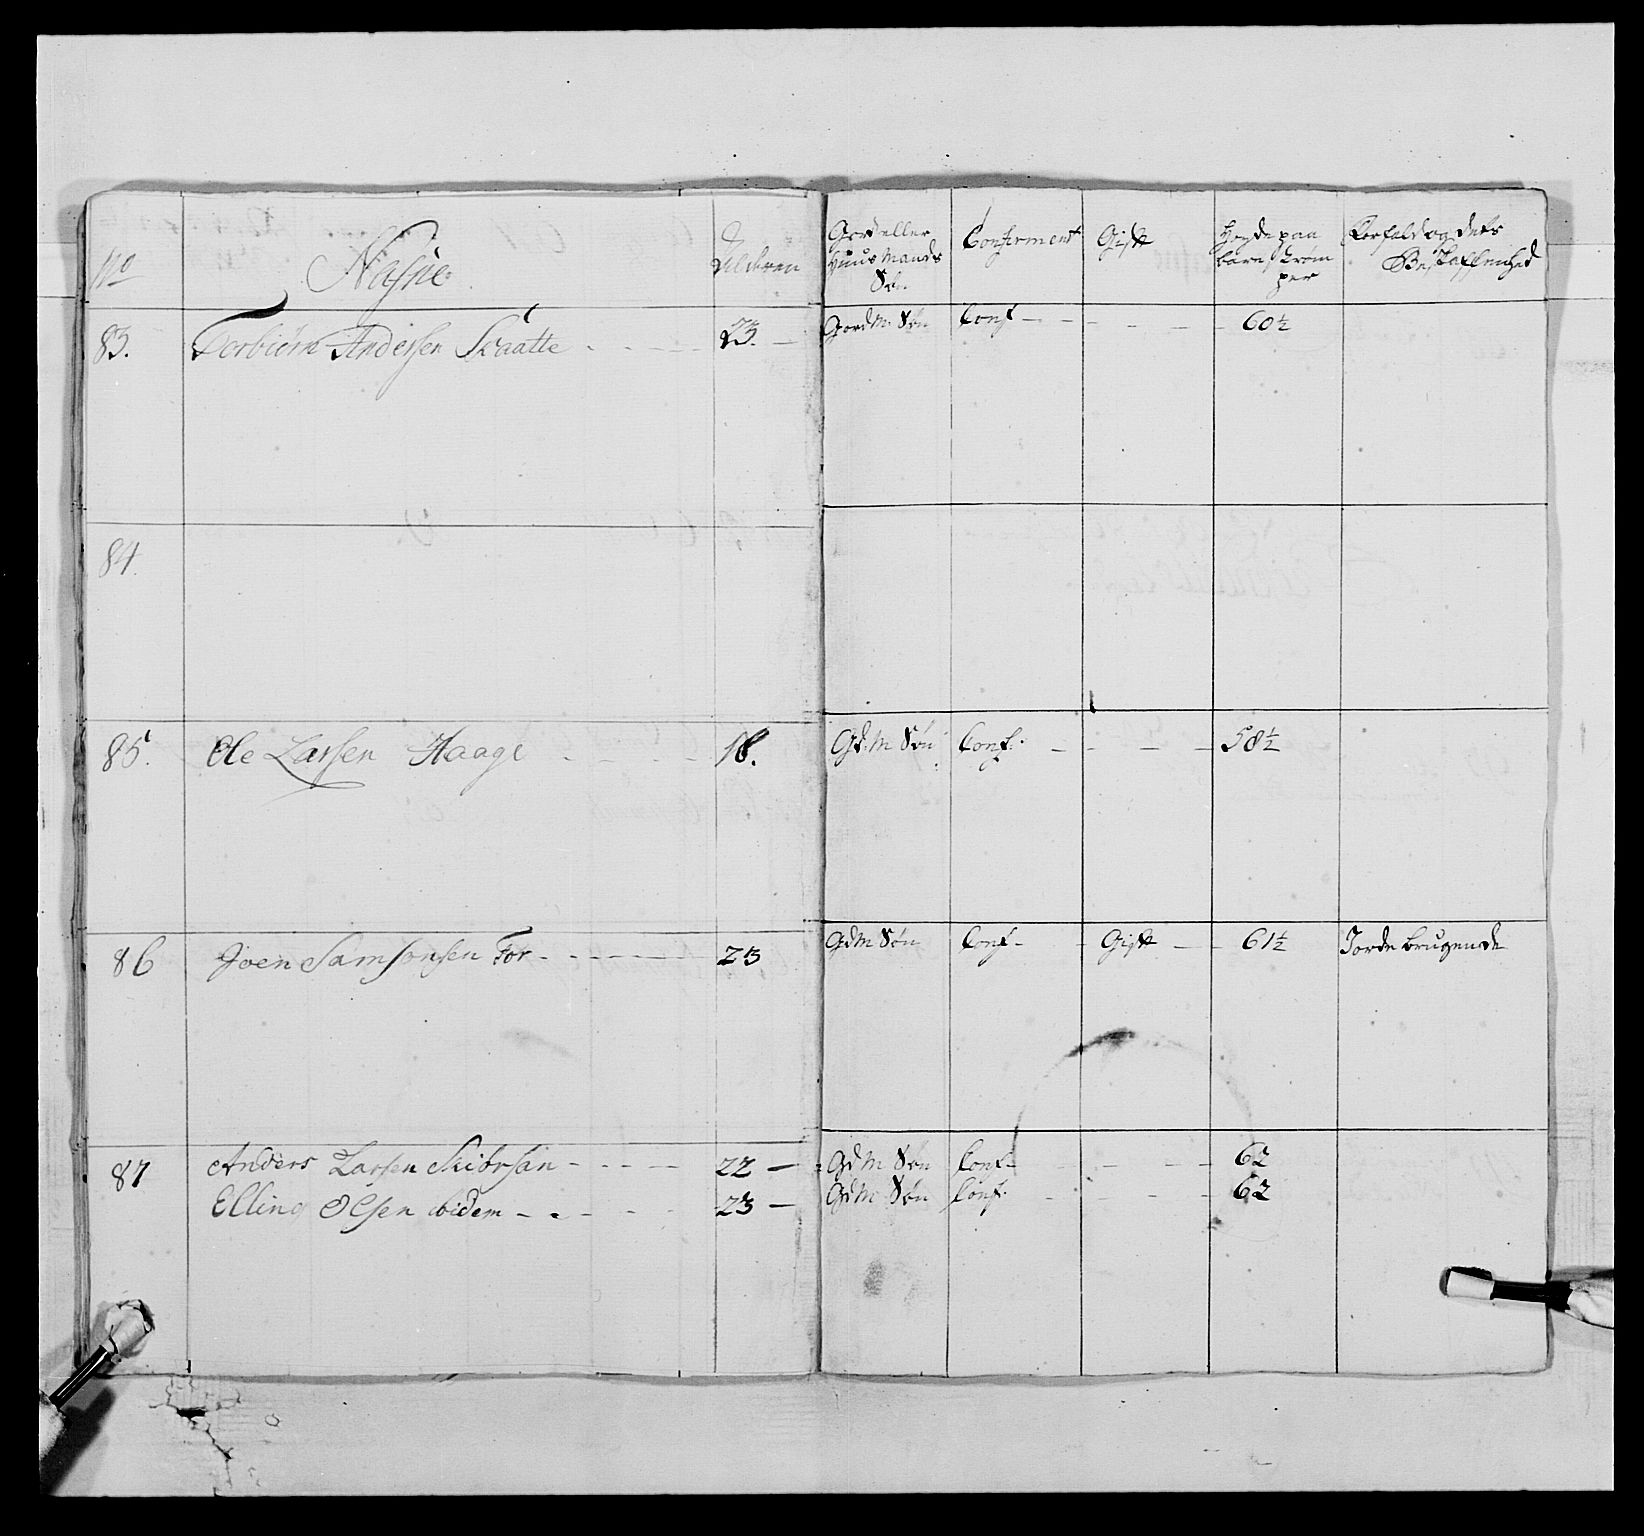 No Nafne Alderen Gord eller Huus Mands Søn Confirmert Gift Høyde paa bare strømper Forfald og dets Beskaffenhed
83. Torbiörn Andersen Skaatte 23. Gord M: Søn Conf 60½
84.
85. Ole Larsen Haage 18. Gd: M Søn Conf: 58½
86 Joen Samsonsen For 23 Gd M Søn Conf Gift 61½ Jordebrugende
87 Anders Larsen 22 Gd M Søn Conf 62
Elling Olsen ibidem 23 Gd M Søn Conf: 62